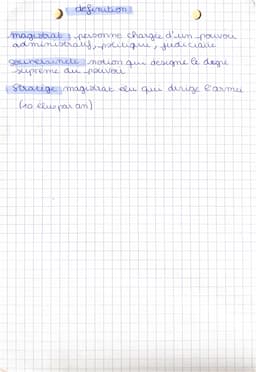 définition
magistrat : personne chargée d'un pouvoir
administratif, politique, judiciaire
souveraineté notion qui désigne le degré
suprême du pouvoir
Stratège magistrat élu qui dirige l'armée
(10 élus par an)